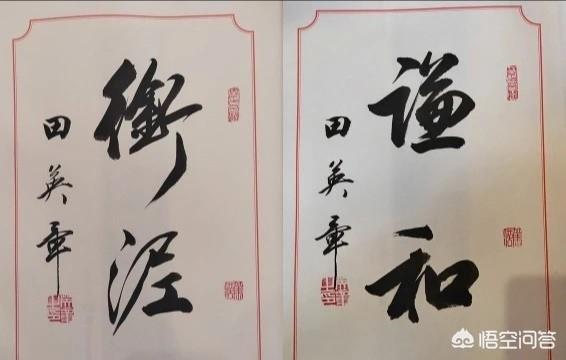 銜泥
田英章
谦和
田英章
悟空问答